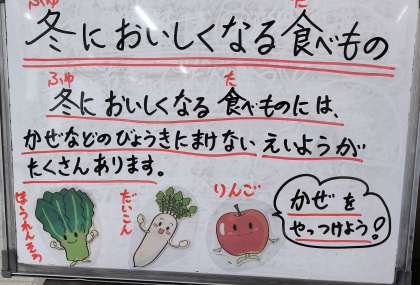 ふゆ
た
冬においしくなる食べもの
ふゆ
た
冬においしくなる食べものには、
かぜなどのびょうきにまけないえいようが
たくさんあります。
ほうれんそう
だいこん
りんご
かぜを
やっつけよう!